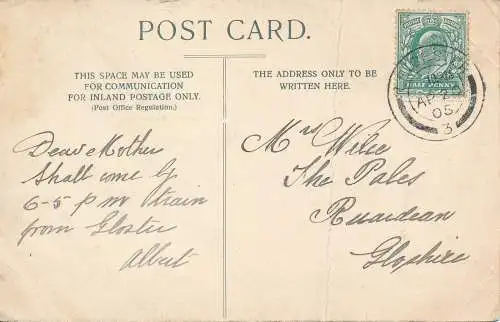 POST CARD.
THIS SPACE MAY BE USED
FOR COMMUNICATION
FOR INLAND POSTAGE ONLY.
(Post Office Regulation.)
THE ADDRESS ONLY TO BE
WRITTEN HERE.
HALF PENNY
AP 2
05
3
Dear Mother
Shall come by
6-5 pm train
from Gloster
Albert
Mrs Wilce
The Pales
Ruardean
Gloshire